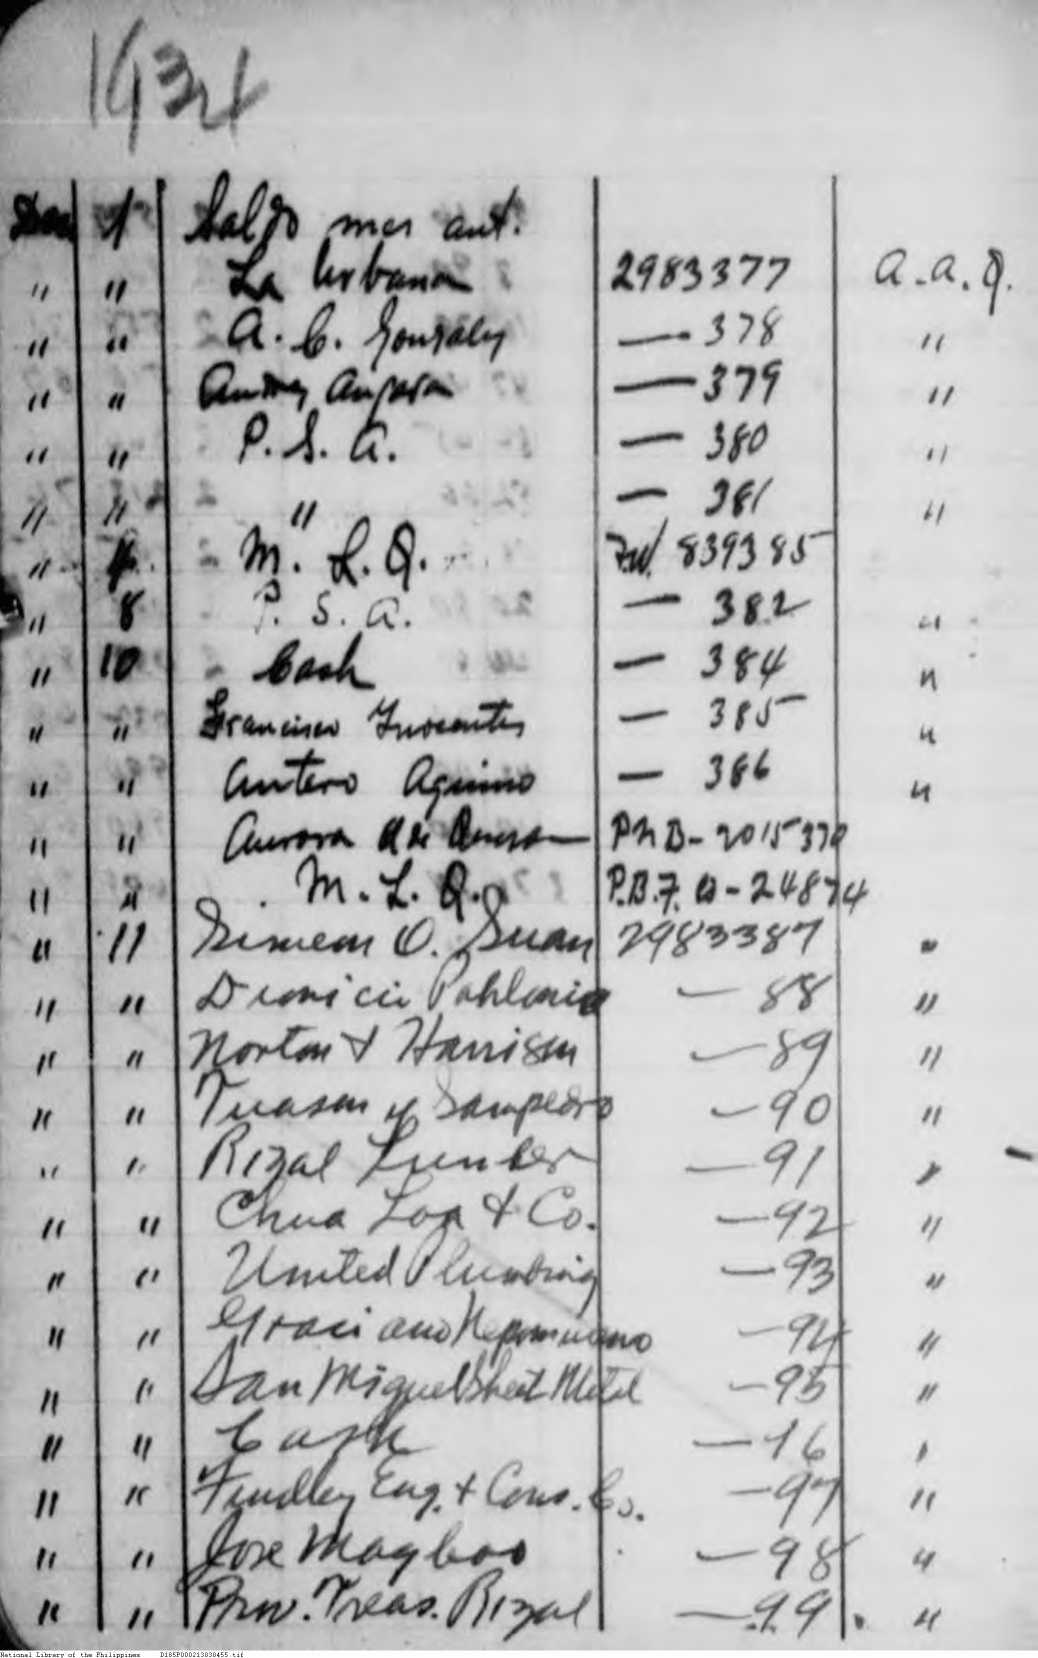 1934
Dec 1 Saldo mes ant.
" " La Urbana 2983377 A.A.Q.
" " A. C. Gonzalez — 378 "
" " Andres Angara — 379 "
" " P. S. A. — 380 "
" " " — 381 "
" M. L. Q. 839385
" 8 P. S. A. — 382 "
" 10 Cash — 384 "
" " Francisco Inocentes — 385 "
" " Antero Aquino — 386 "
" " Aurora A de PNB-2015370
" " M. L. Q. P.B.F. 24874
" 11 Simeon O. Suan 2983387 "
" " Dionicia — 88 "
" " Norton & Harrison — 89 "
" " Tuason y Sampedro — 90 "
" " Rizal Lumber — 91 "
" " Chua Loa & Co. — 92 "
" " United Plumbing — 93 "
" " Graciano Nepomuceno — 94 "
" " San Miguel Sheet Metal — 95 "
" " Cash — 96 "
" " Findley Eng. & Cons. Co. — 97 "
" " Jose Magboo — 98 "
" " Prov. Treas. Rizal — 99. "
National Library of the Philippines D185P000213030455.tif